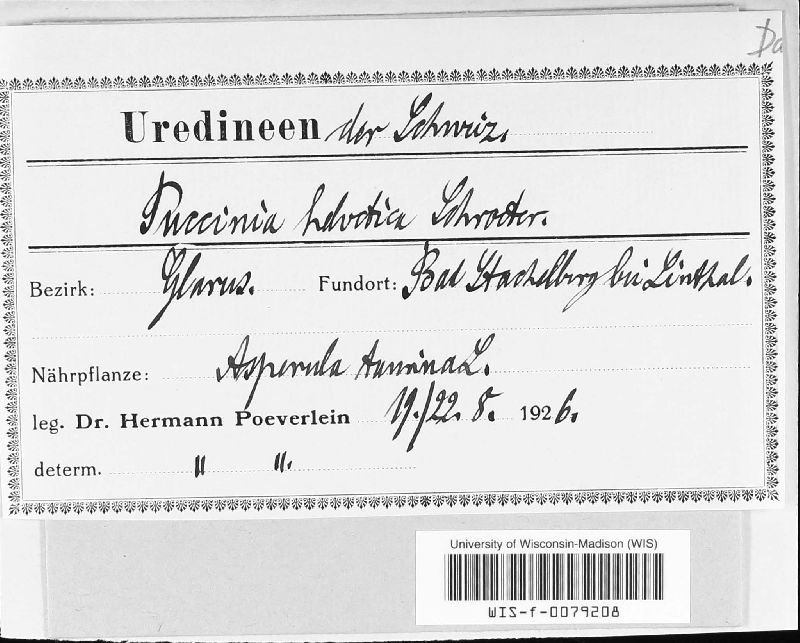 Da
Uredineen der Schweiz.
Puccinia helvetica Schroeter.
Bezirk: Glarus. Fundort: Bad Stachelberg bei Linthal.
Nährpflanze: Asperula taurina L.
leg. Dr. Hermann Poeverlein 19./22. 8. 1926.
determ. " ".
University of Wisconsin-Madison (WIS)
WIS-f-0079208